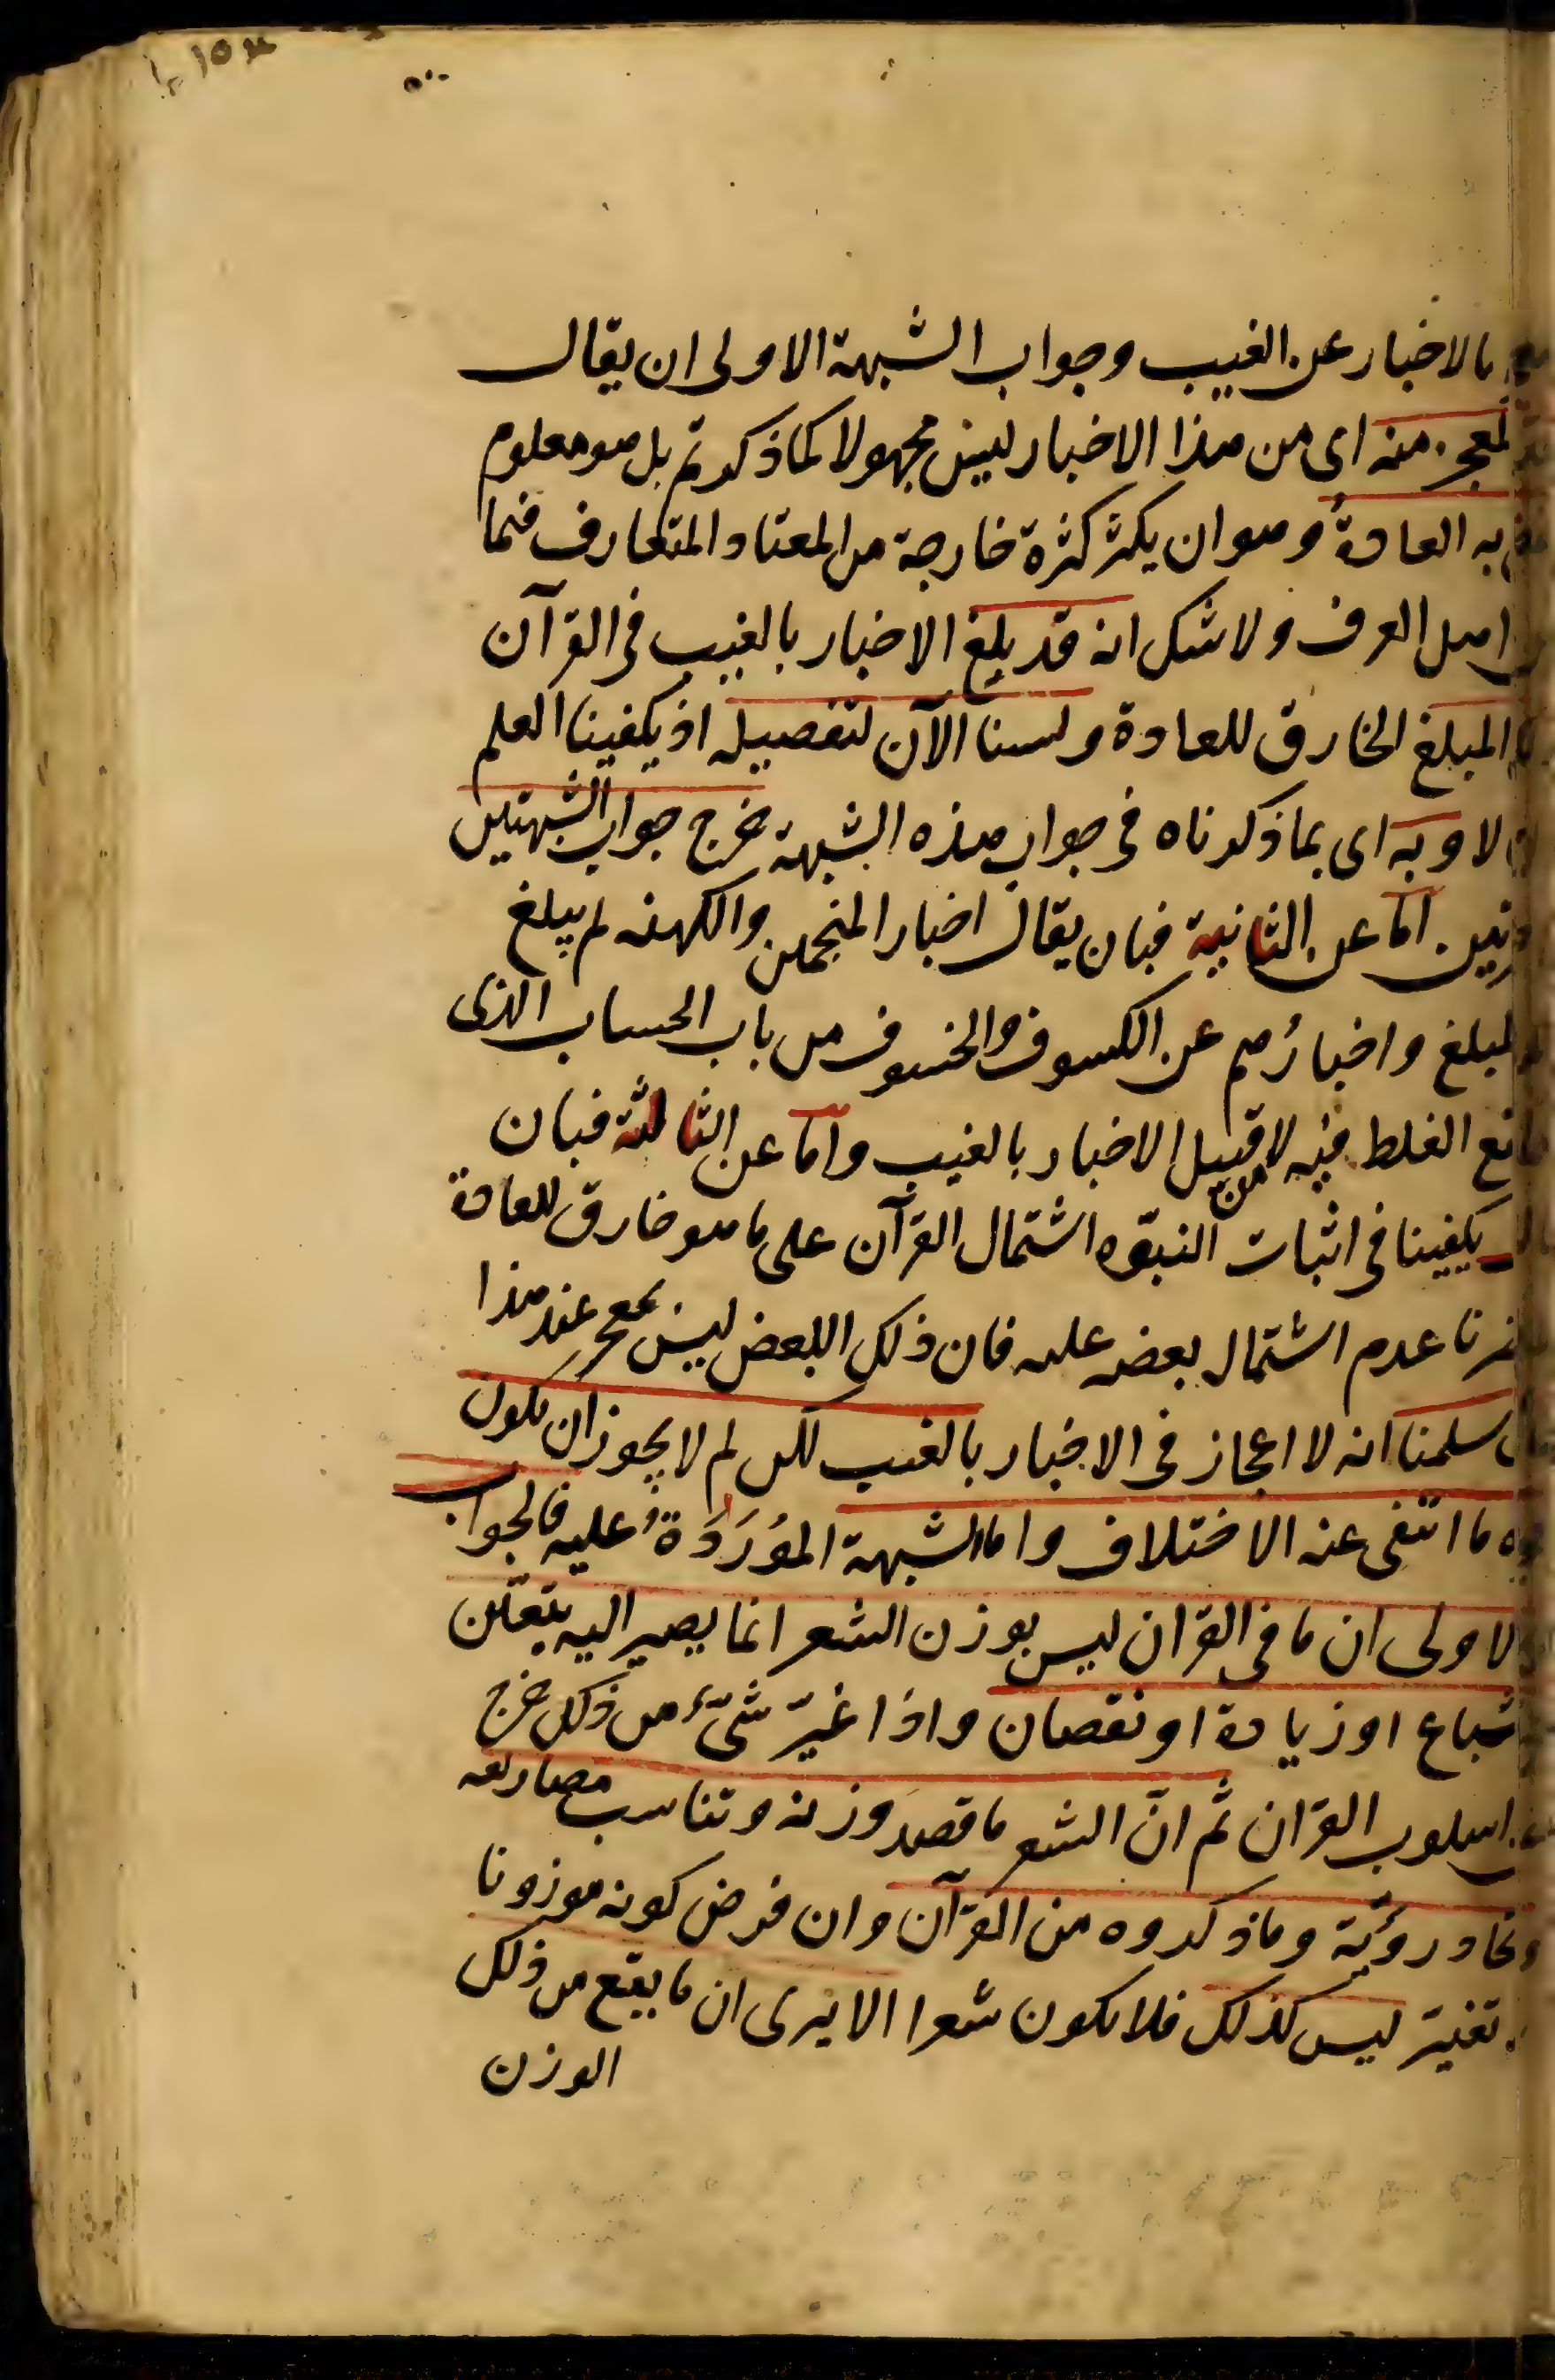 بالاخبار عن الغيب وجواب الشبهة الاولى ان يقال
المعجز منه اى من هذا الاخبار ليس مجهولا كما ذكرتم بل هو معلوم
به العادة وهو ان يكثر كثرة خارجة من المعتاد المتعارف فيما
اهل العرف ولا شك انه قد بلغ الاخبار بالغيب فى القرآن
المبلغ الخارق للعادة ولسنا الآن لتفصيله اذ يكفينا العلم
لا وبه اى بما ذكرناه فى جواب هذه الشبهة خرج جواب الشبهتين
اما عن الثانية فبان يقال اخبار المنجمين والكهنة لم يبلغ
المبلغ واخبارُهم عن الكسوف والخسوف من باب الحساب الذى
الغلط فيه لا من قبيل الاخبار بالغيب واما عن الثالثة فبان
يكفينا فى اثبات النبوّه اشتمال القرآن على ما هو خارق للعادة
عدم اشتمال بعضه عليه فان ذلك البعض ليس بمعجز عند هذا
سلمنا انه لا اعجاز فى الاخبار بالغيب لكن لم لا يجوز ان يكون
ما انتفى عنه الاختلاف واما الشبهة المُورَدَةُ عليه فالجواب
الاولى ان ما فى القران ليس بوزن الشعر انما يصير اليه بتغيّر
اشباع او زيادة او نقصان واذا غيّر شىء من ذلك خرج
اسلوب القران ثم انّ الشعر ما قصد وزنه وتناسب مصاريعه
واتحاد رويّه وما ذكروه من القرآن وان فرض كونه موزونا
تغيّر ليس كذلك فلا يكون شعرا الا يرى ان ما يقع من ذلك
الوزن